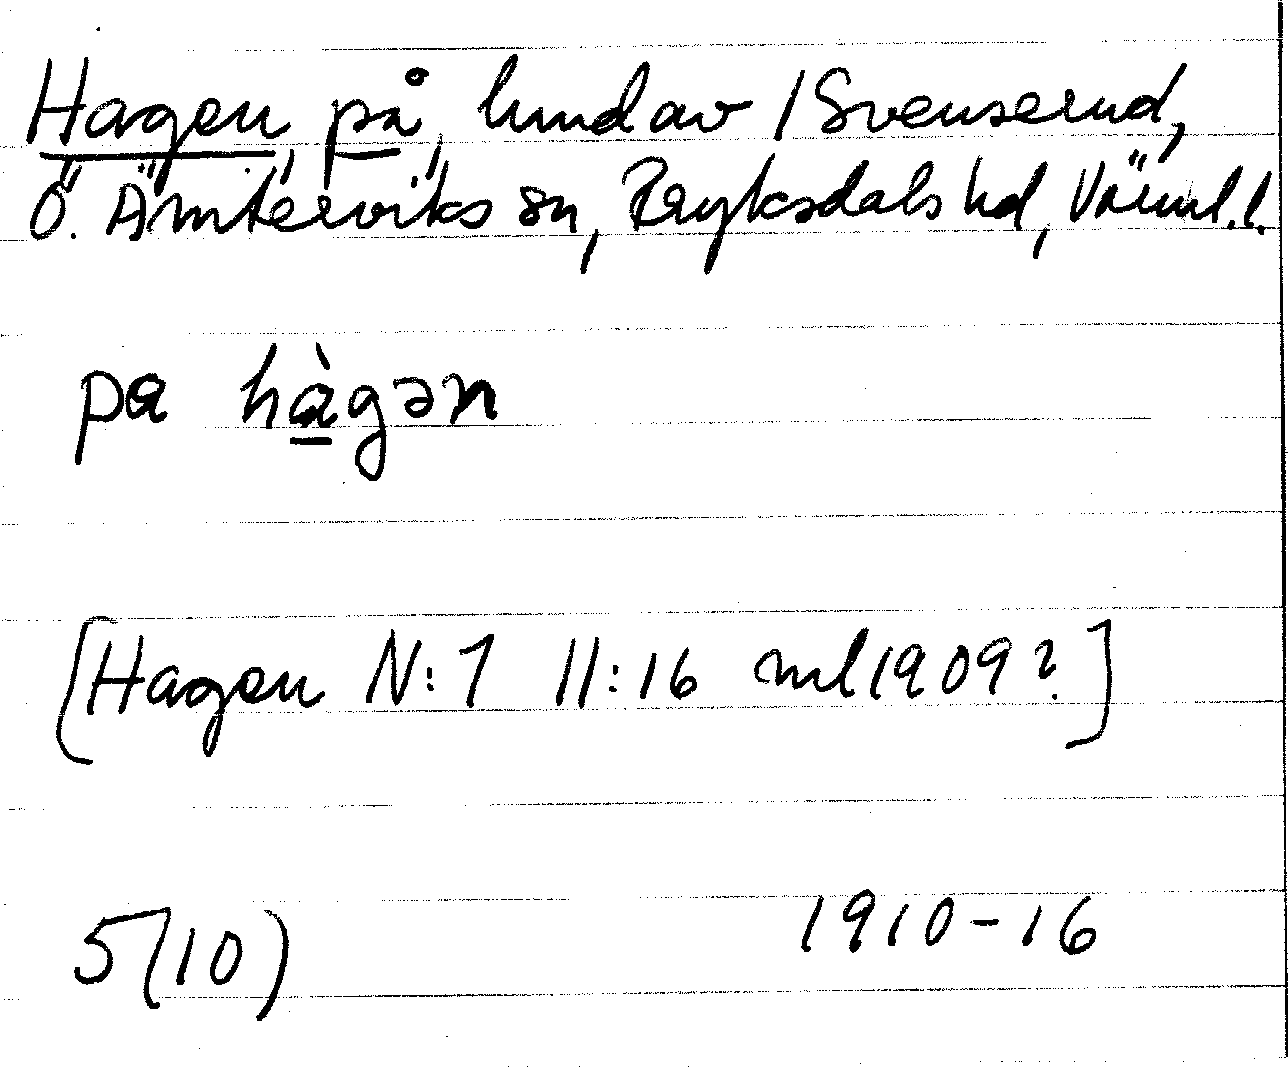 Hagen, på, lund av 1 Svenserud,
Ö. Ämterviks sn, Fryksdals hd, Värml. l.
pa hàgən
[Hagen N:1 11:16 ml 1909?]
5(10) 1910-16